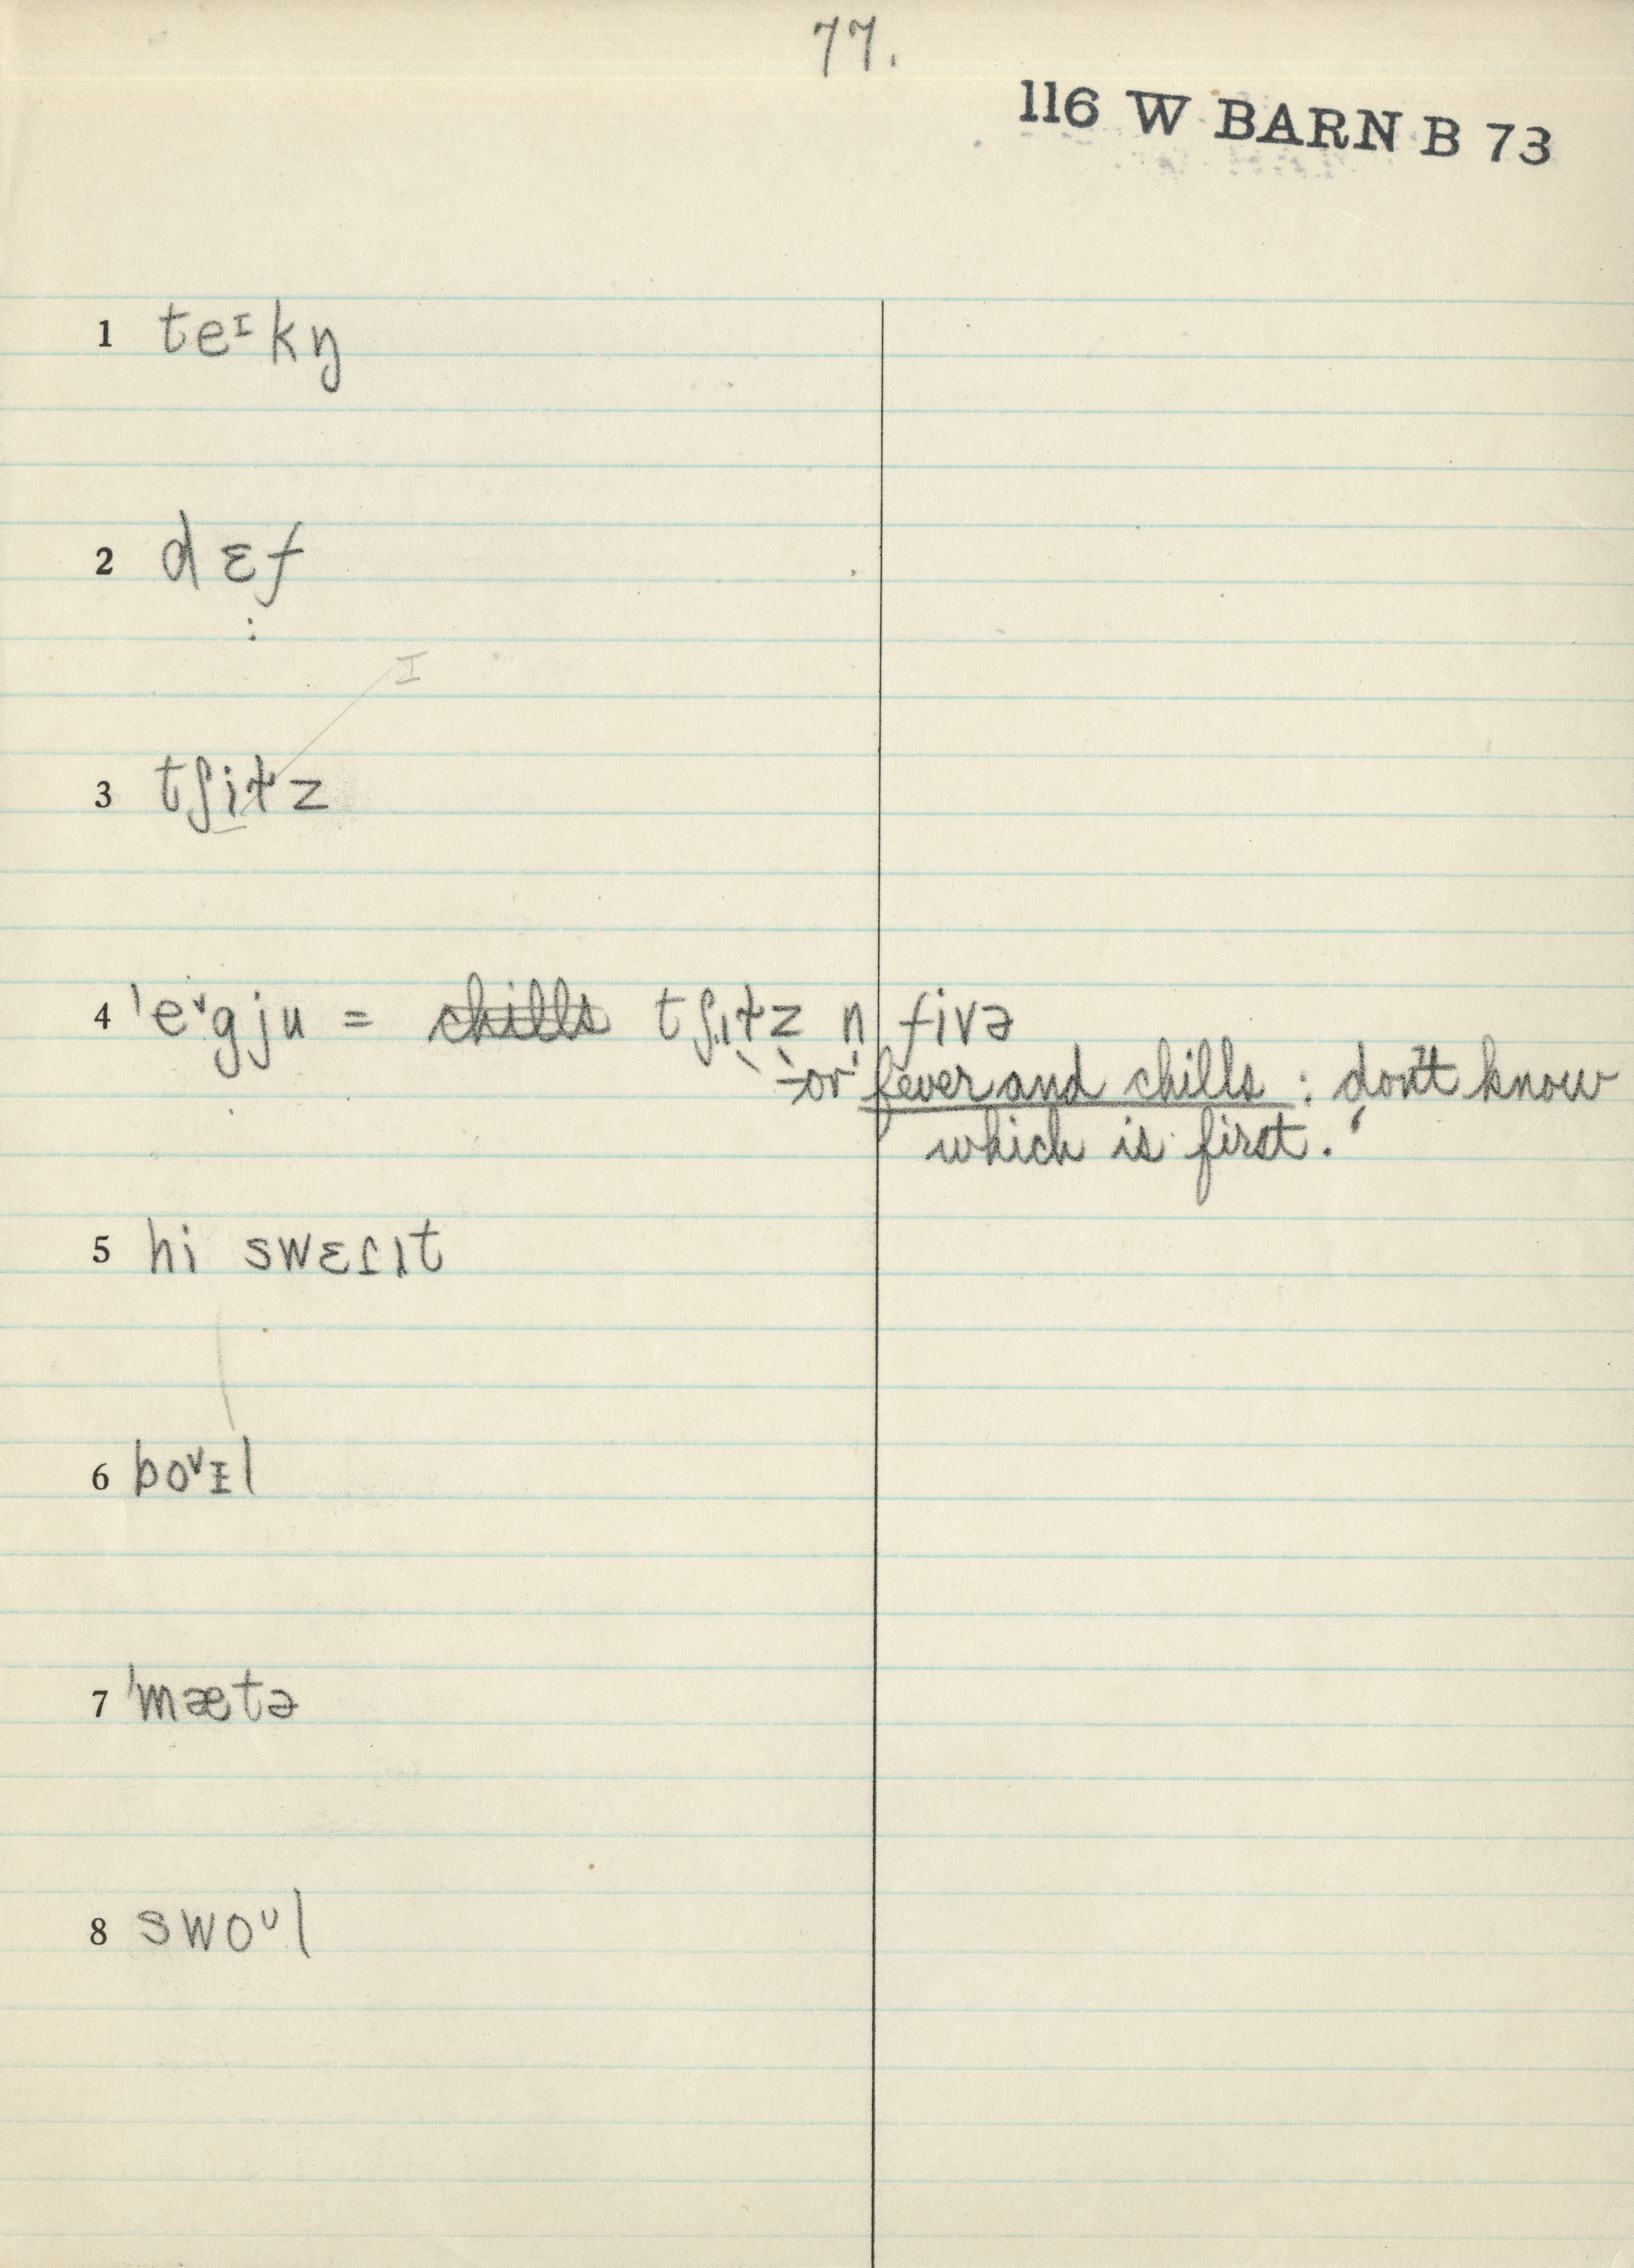 77.
116 W BARN B 73
1 teᶦkŋ
2 dɛf
:
I
3 tʃiɫz
4 ˈeᵛgju = chills tʃɪɫz n fivə
-or fever and chills : don't know
which is first.
5 hi swɛɾɪt
6 boᵛɪl
7 ˈmætə
8 swoᶸl